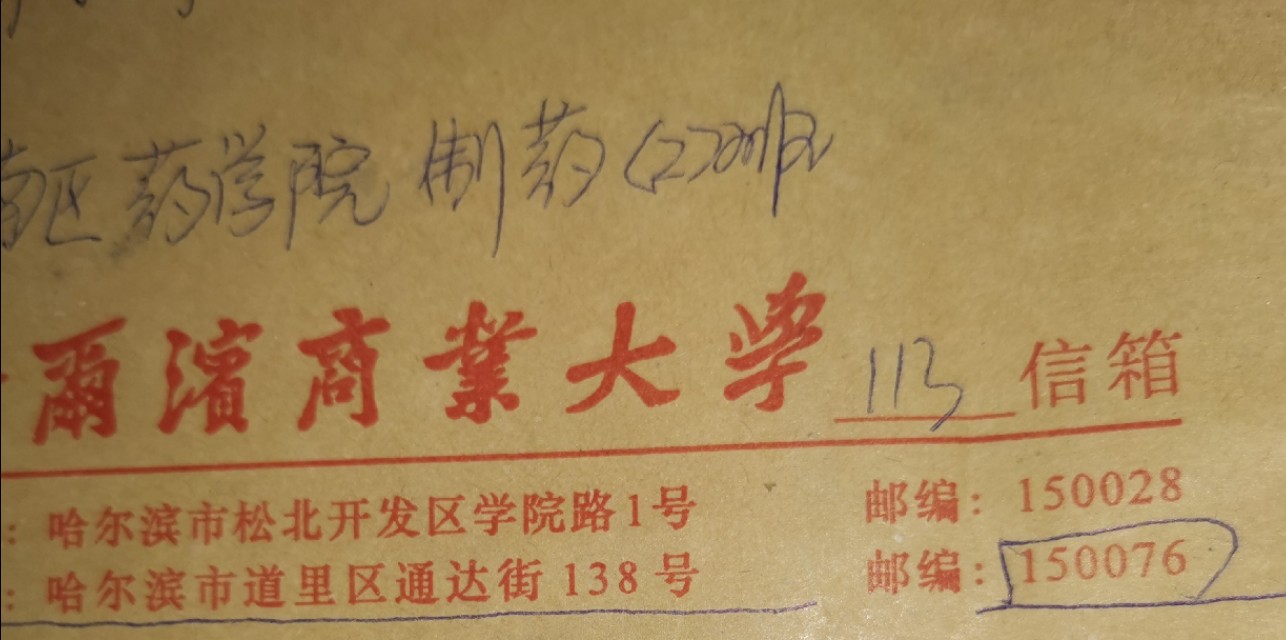 南区 药学院 制药(2)班
爾濱商業大学 113 信箱
: 哈尔滨市松北开发区学院路1号 邮编: 150028
: 哈尔滨市道里区通达街 138 号 邮编: 150076